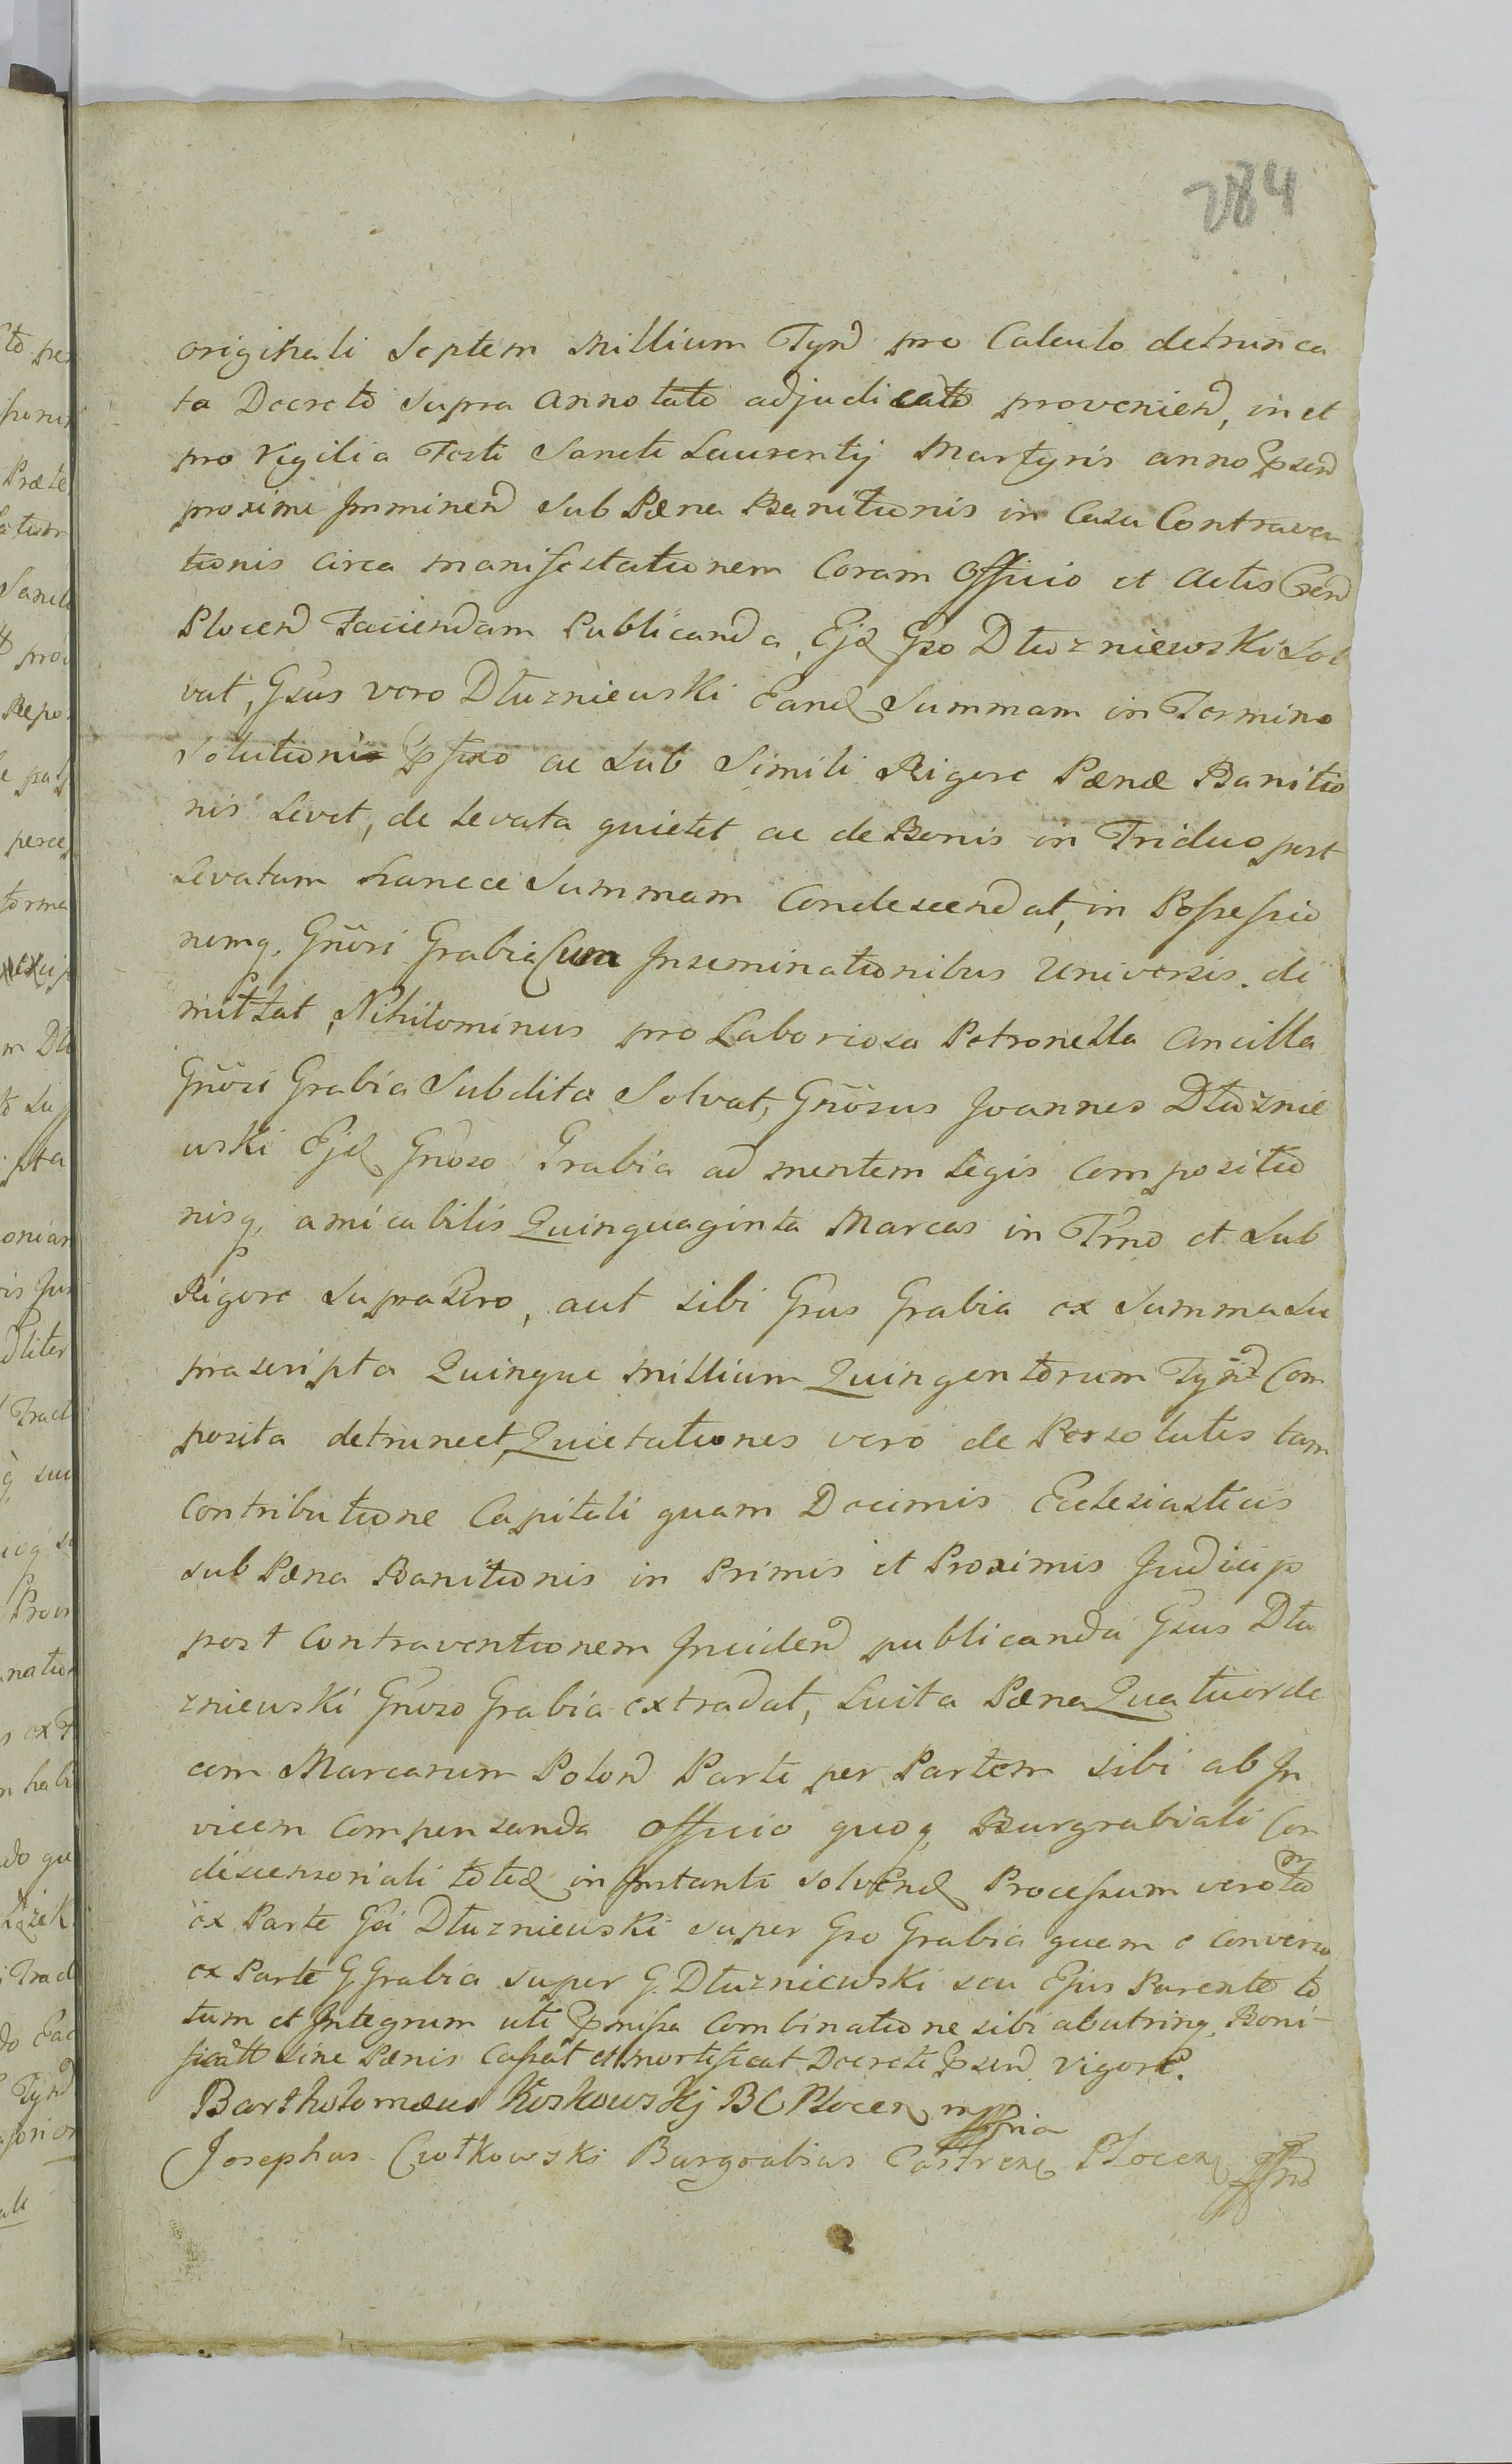 284
originali Septem Millium Tynd pro Calculo detrunca
ta Decreto Supra annotato adjudicato proveniend, in et
pro Vigilia Festi Sancti Laurentij Martyris anno Pnsend
proxime Imminend Sub Pæna Banitionis in Casu Contraven
tionis circa manifestationem Coram Officio et Actis
Plocend Faciendam Publicanda, Ejd Gso Dłuzniewski Sol
vat, Gsus vero Dłuzniewski Eand Summam in Termino
Solutioni pfixo ac Sub Simili Rigore Pænæ Banitio
nis Levet, de Levata quietet, ac de Bonis in Triduo post
Levatam hancce Summam Condescendat, in Possessio
nemq. Gnõsi Grabia Cum Inseminationibus Universis. di
mittat, Nihilominus pro Laboriosa Petronella Ancilla
Gnõsi Grabia Subdita Solvat, Gnõsus Joannes Dłuznie
wski Ejd Gnoso Grabia ad mentem Legis Compositio
nisq. amicabilis Quinquaginta Marcas in Trno et Sub
Rigore Suprascro, aut sibi Gsus Grabia ex Summa Su
prascripta Quinque Millium Quingentorum Tynd Com
posita detruncet, Quietationes vero de Persolutis tam
Contributione Capitali quam Decimis Ecclesiasticis
sub Pæna Banitionis in Primis et Proximis Judicijs
post Contraventionem Inciden publicanda Gsus Dłu
zniewski Gnoso Grabia extradat, Luita Pæna Quatuorde
cem Marcarum Polond Parti per Partem sibi ab In
vicem Compensanda Officio quoq Burgrabiali Con
descensoriali totid in Instanti solvend Processum vero
ex Parte Gsi Dłuzniewski super Gso Grabia quem e Converso
ex Parte G Grabia super G. Dłuzniewski seu Ejus Parente to
tum et Integrum uti pmissa Combinatione sibi abutrinq. Boni-
ficatto sine Pænis Cassat et mortificat Decreti pnsend vigore.
Bartholomæus Koskowskj BC Plocen mppria
Josephus Ciołkowski Burgrabius Castren Plocen